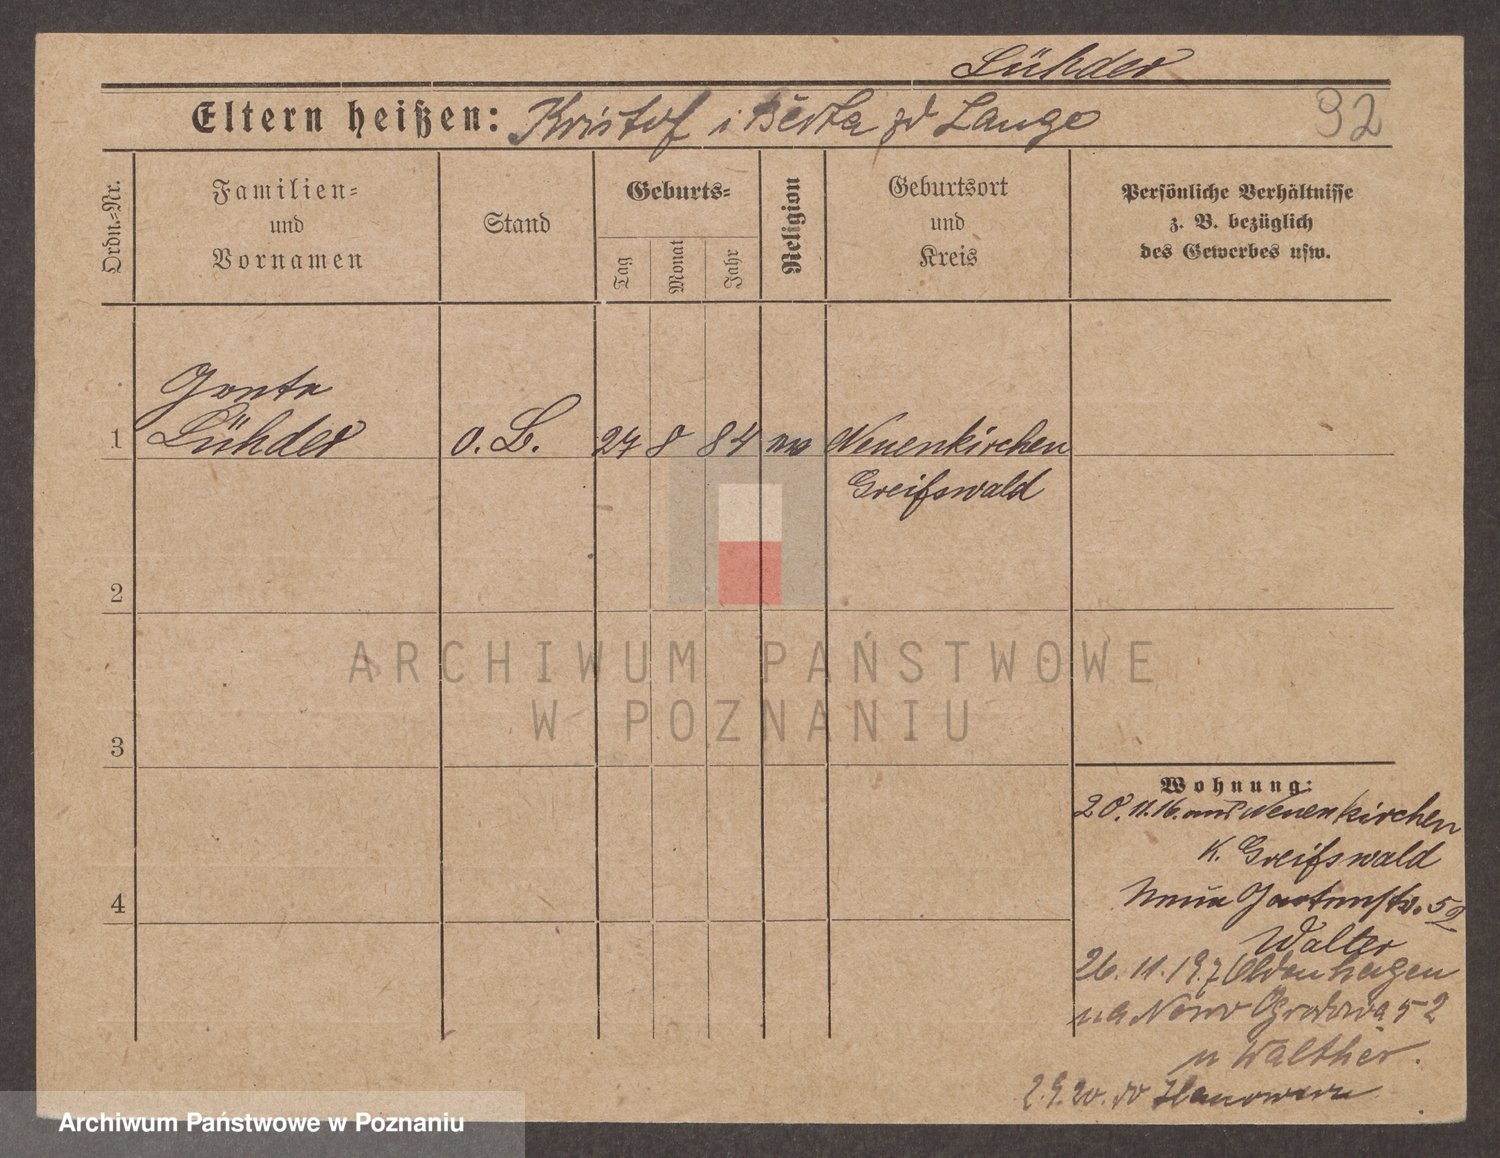 Lühder
Eltern heißen: Kristof i Berta zd Lange
92
Ordn.=Nr.
Familien=
und
Vornamen
Stand
Geburts=
Tag
Monat
Jahr
Religion
Geburtsort
und
Kreis
Persönliche Verhältnisse
z. B. bezüglich
des Gewerbes usw.
1
Lühder
o. B.
27 8 84
Neuenkirchen
Greifswald
2
3
4
Wohnung:
28.11.16. aus Neuenkirchen
K. Greifswald
Neue Gartenstr. 52
Walter
26. 11. 19. z Oldenhagen
na Nowo Ogrodowa 52
u Walther.
2.9.20. do Hanoweru
ARCHIWUM PAŃSTWOWE
W POZNANIU
Archiwum Państwowe w Poznaniu